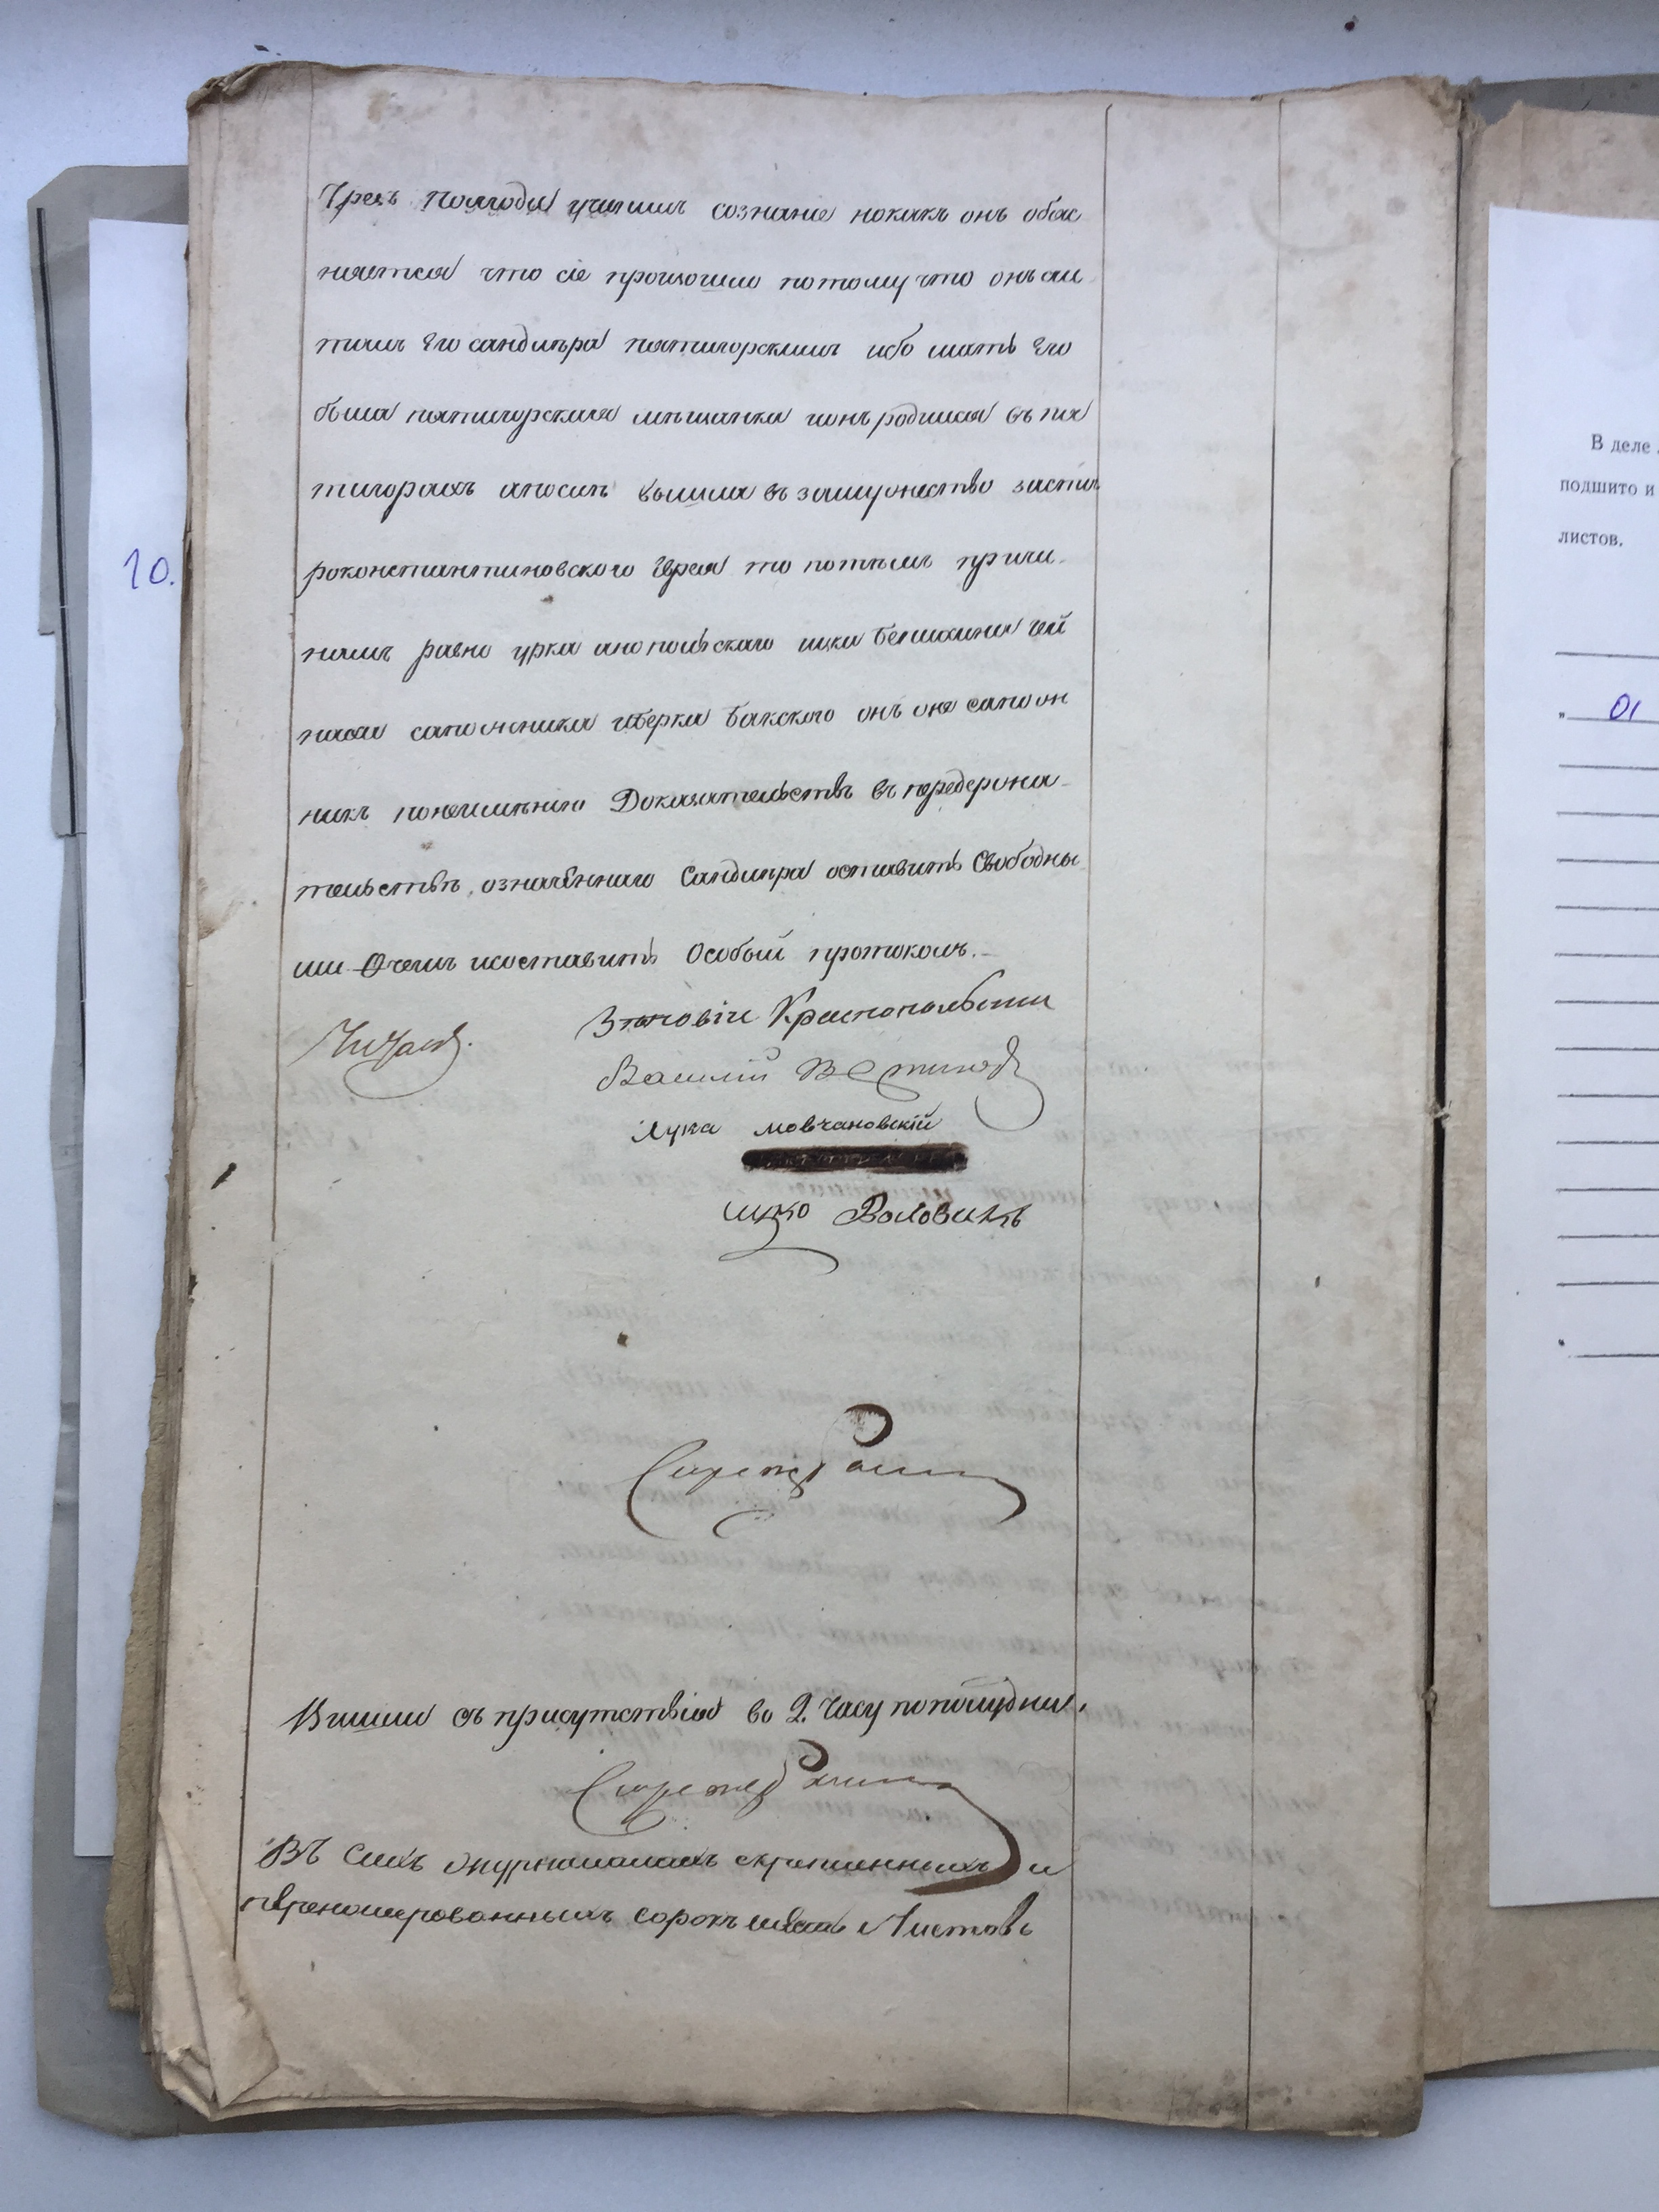 Чрезъ полгода учинилъ сознание нокакъ онъ обяс
няется что сіе произошло потому что онъ счи
тилъ Его Сандлера пятигорскимъ ибо мать Его
была пятигорская мѣщанка ионъ родился въ пя
тигорахъ апосилъ вышла въ замужество заста
роконстантиновского Еврея то потѣмъ причи
намъ равно урка анопольскаго ицка Бельмана Чей
сапожника иберка Бакского онъ оне сапож
никъ понеимѣнію Доказательствъ въ передержа
тельствѣ, означеннаго Сандлера оставить Свободны
ми Очемъ исоставить Особый протоколъ.
Краснопольский
Василій
Лука Мовчановскій
ицко Воловикъ
Секретарь
10.
Вышли съ присутствія во 2. часу пополудни.
Секретарь
Въ Сихъ журналахъ скрепленныхъ и
перенумерованныхъ сорокъ Листовъ
В деле
подшито и
листов.
" 01